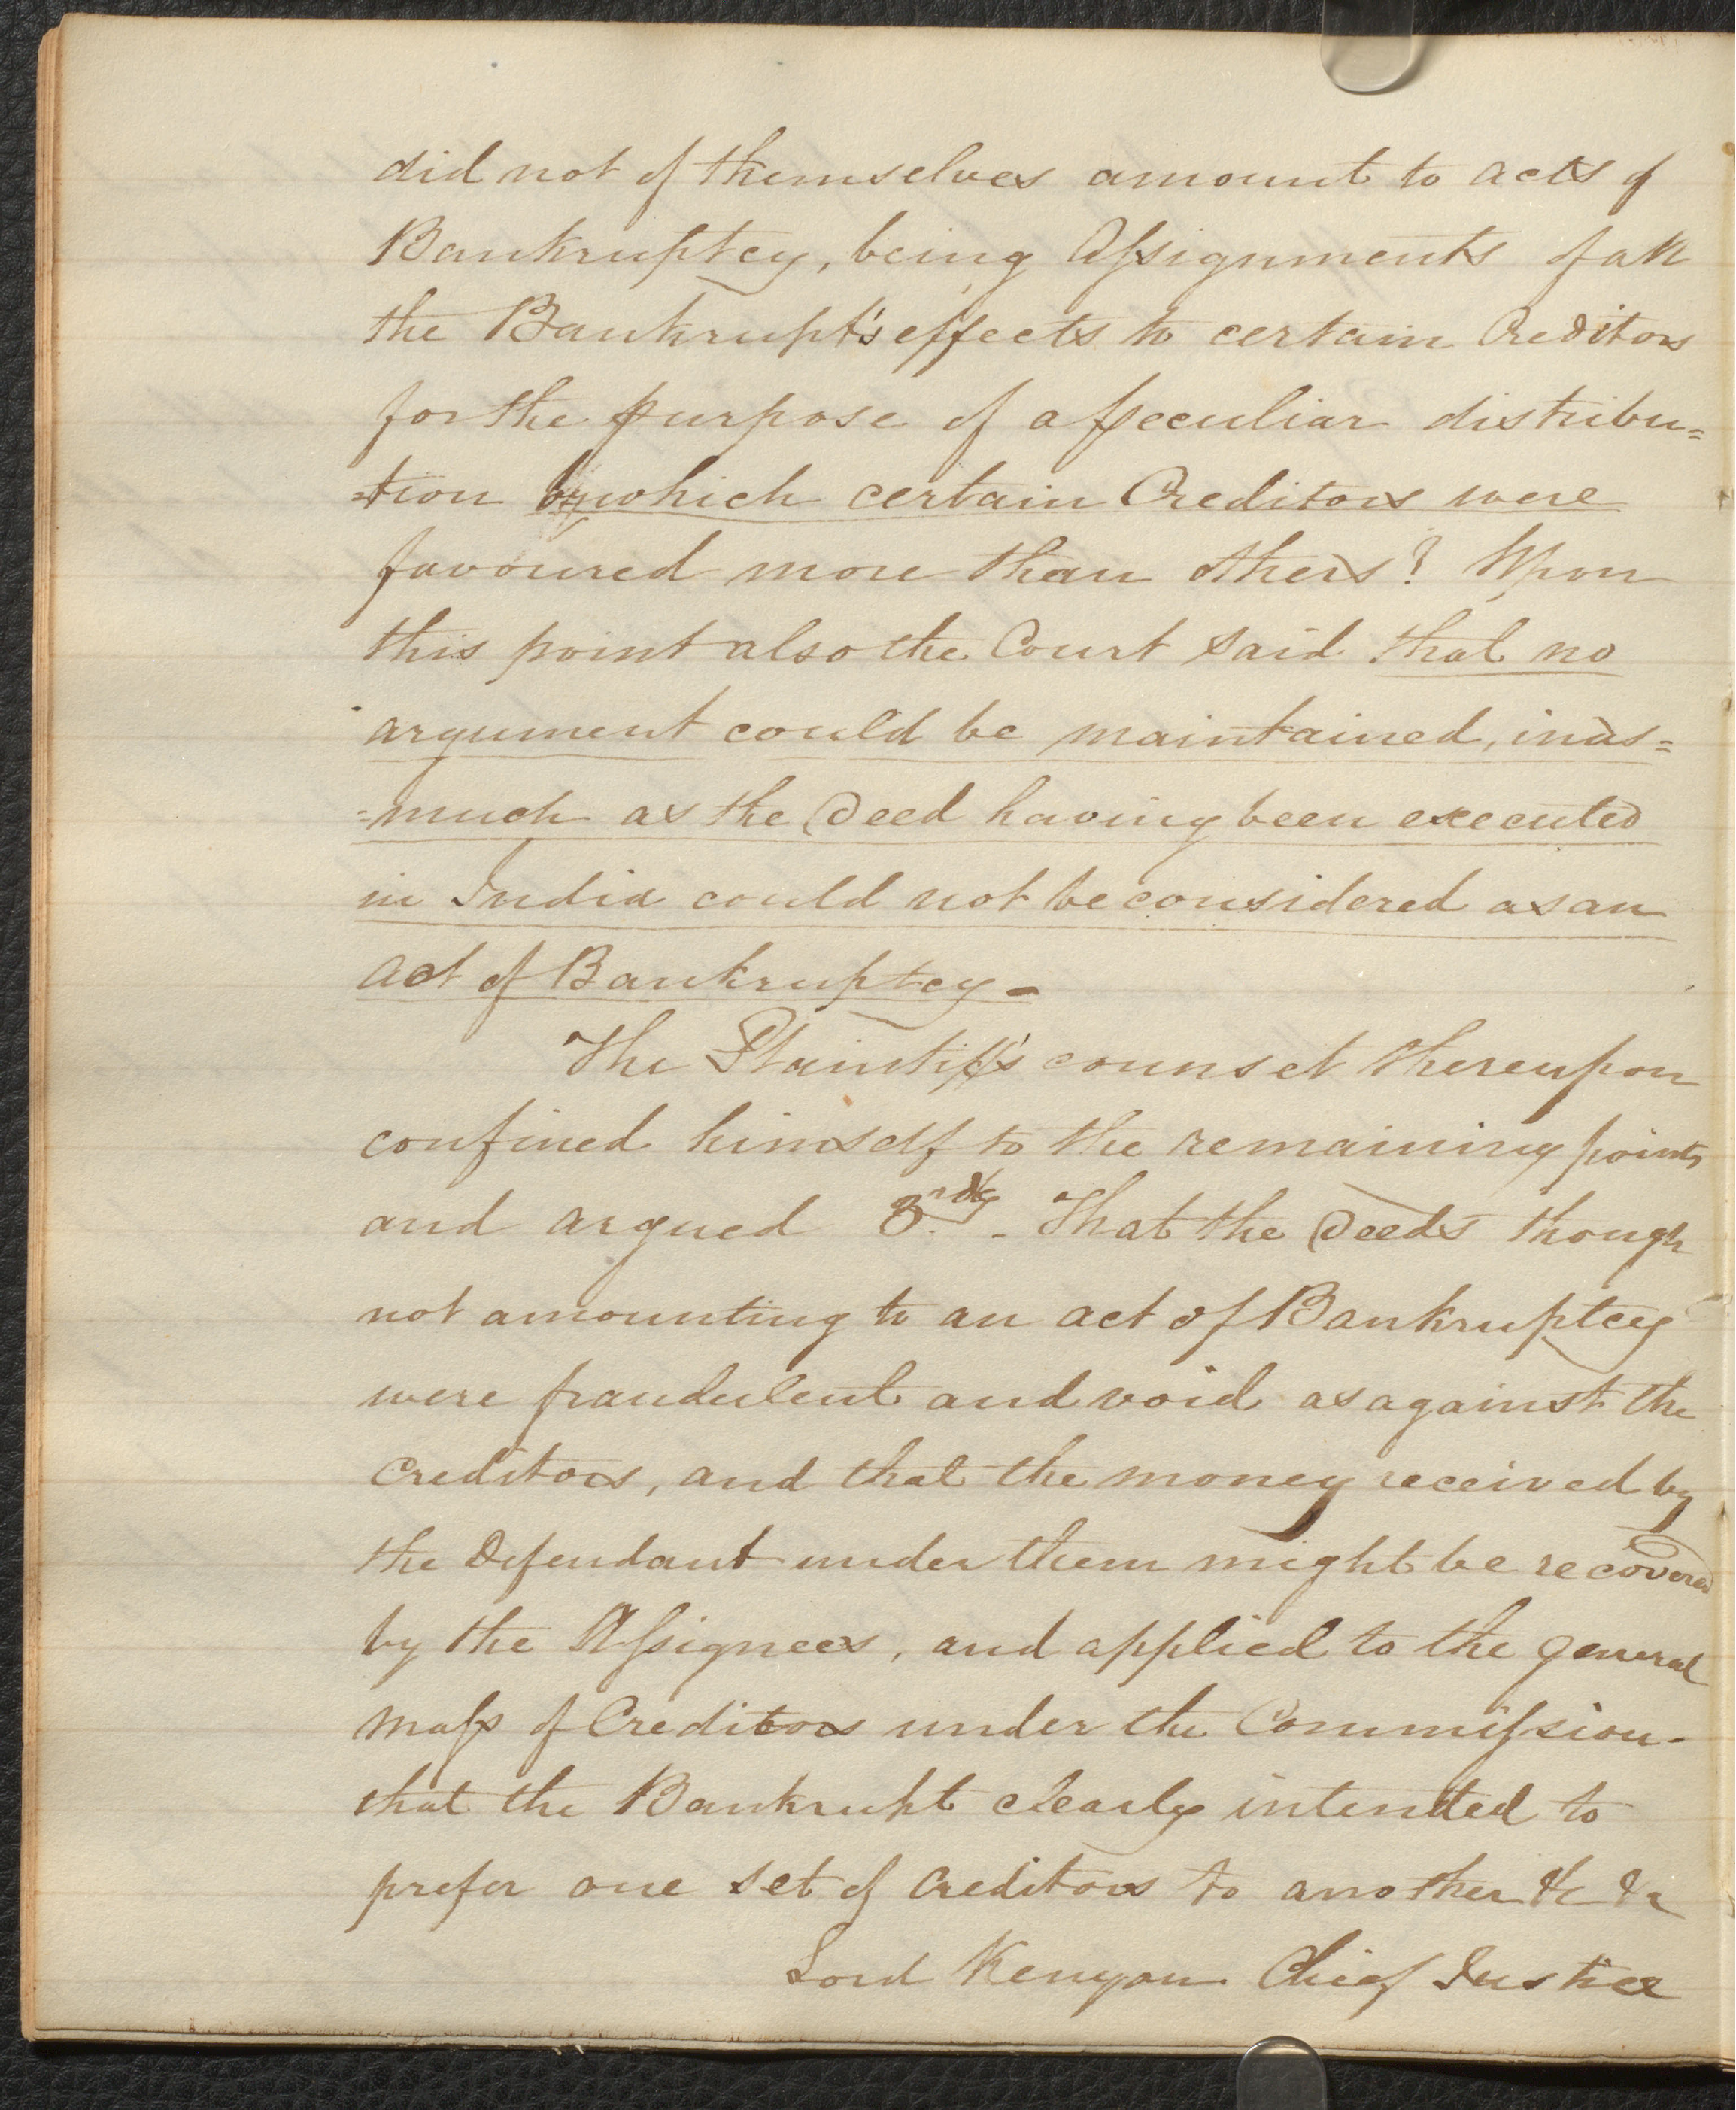 did not of themselves amount to acts of
Bankruptcy, being Assignments of all
the Bankrupt's effects to certain Creditors
for the purpose of a peculiar distribu=
=tion by which certain Creditors were
favoured more than others? Upon
this point also the Court said that no
argument could be maintained, inas=
=much as the Deed having been executed
in India could not be considered as an
act of Bankruptcy -
The Plaintiff's counsel thereupon
confined himself to the remaining points
and argued 3rdly. - That the Deeds though
not amounting to an act of Bankruptcy
were fraudulent and void as against the
Creditors, and that the money received by
the Defendant under them might be recovered
by the Assignees, and applied to the general
mass of Creditors under the Commission -
that the Bankrupt clearly intended to
prefer one set of Creditors to another &c &c
Lord Kenyon Chief Justice